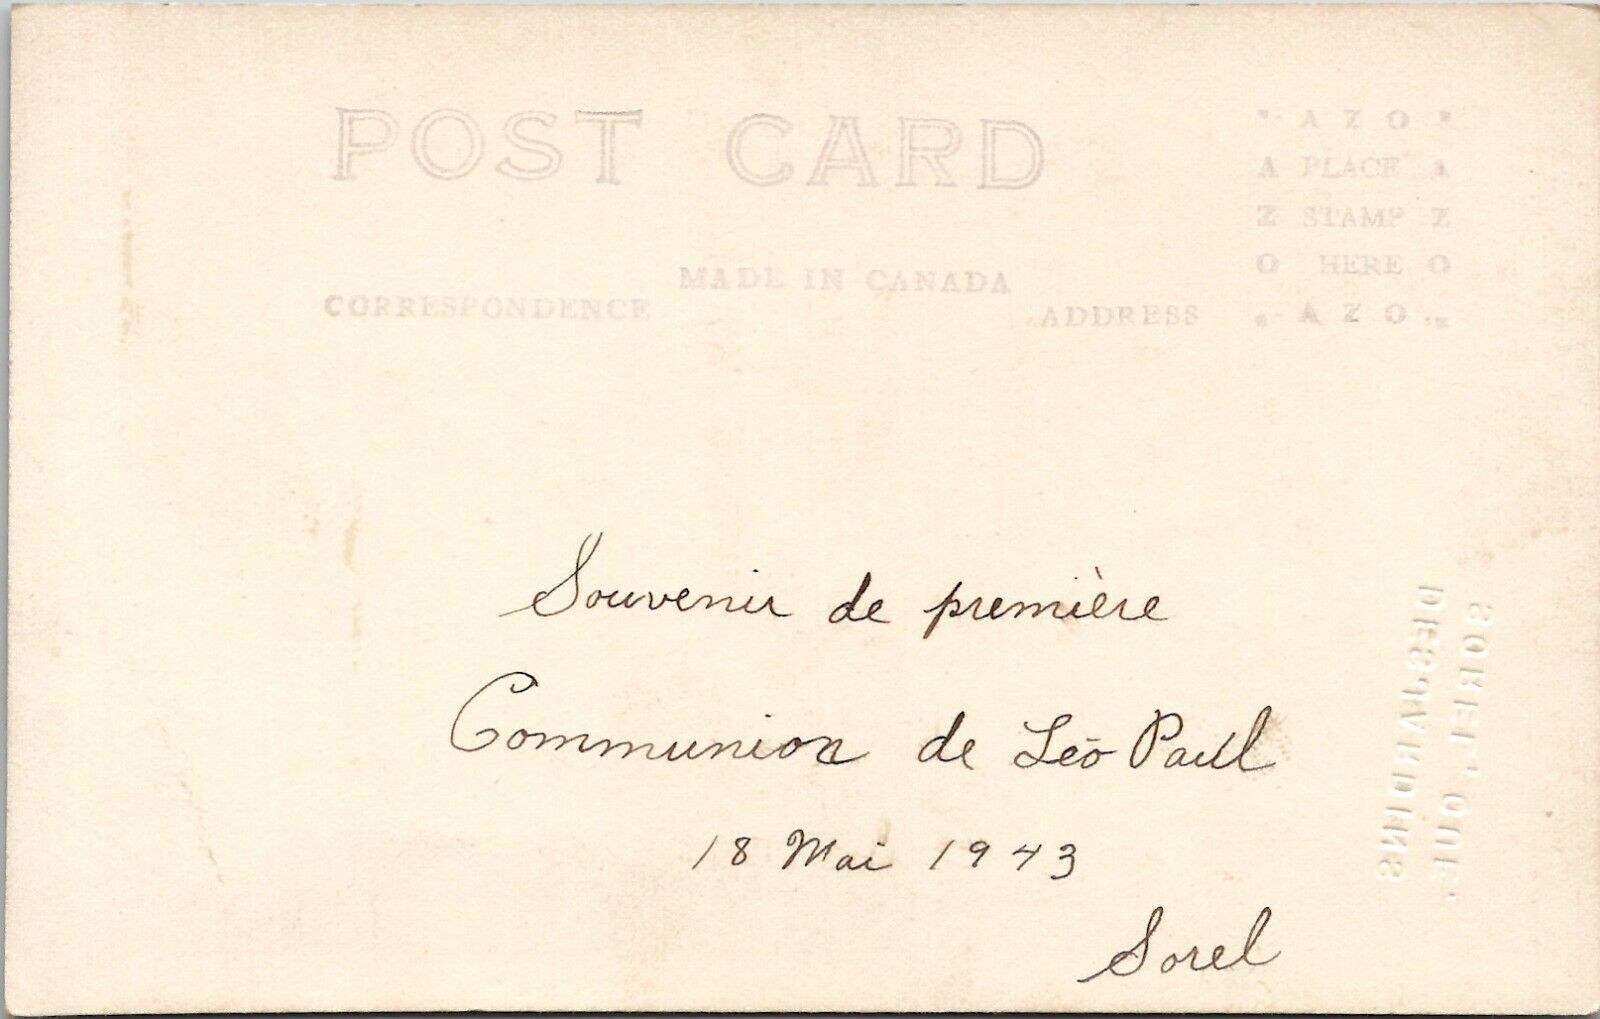 POST CARD
MADE IN CANADA
CORRESPONDENCE
ADDRESS
A Z O
A PLACE A
Z STAMP Z
O HERE O
A Z O
Souvenir de première
Communion de Léo Paul
18 Mai 1943
Sorel
DESJARDINS
SOREL, QUE.